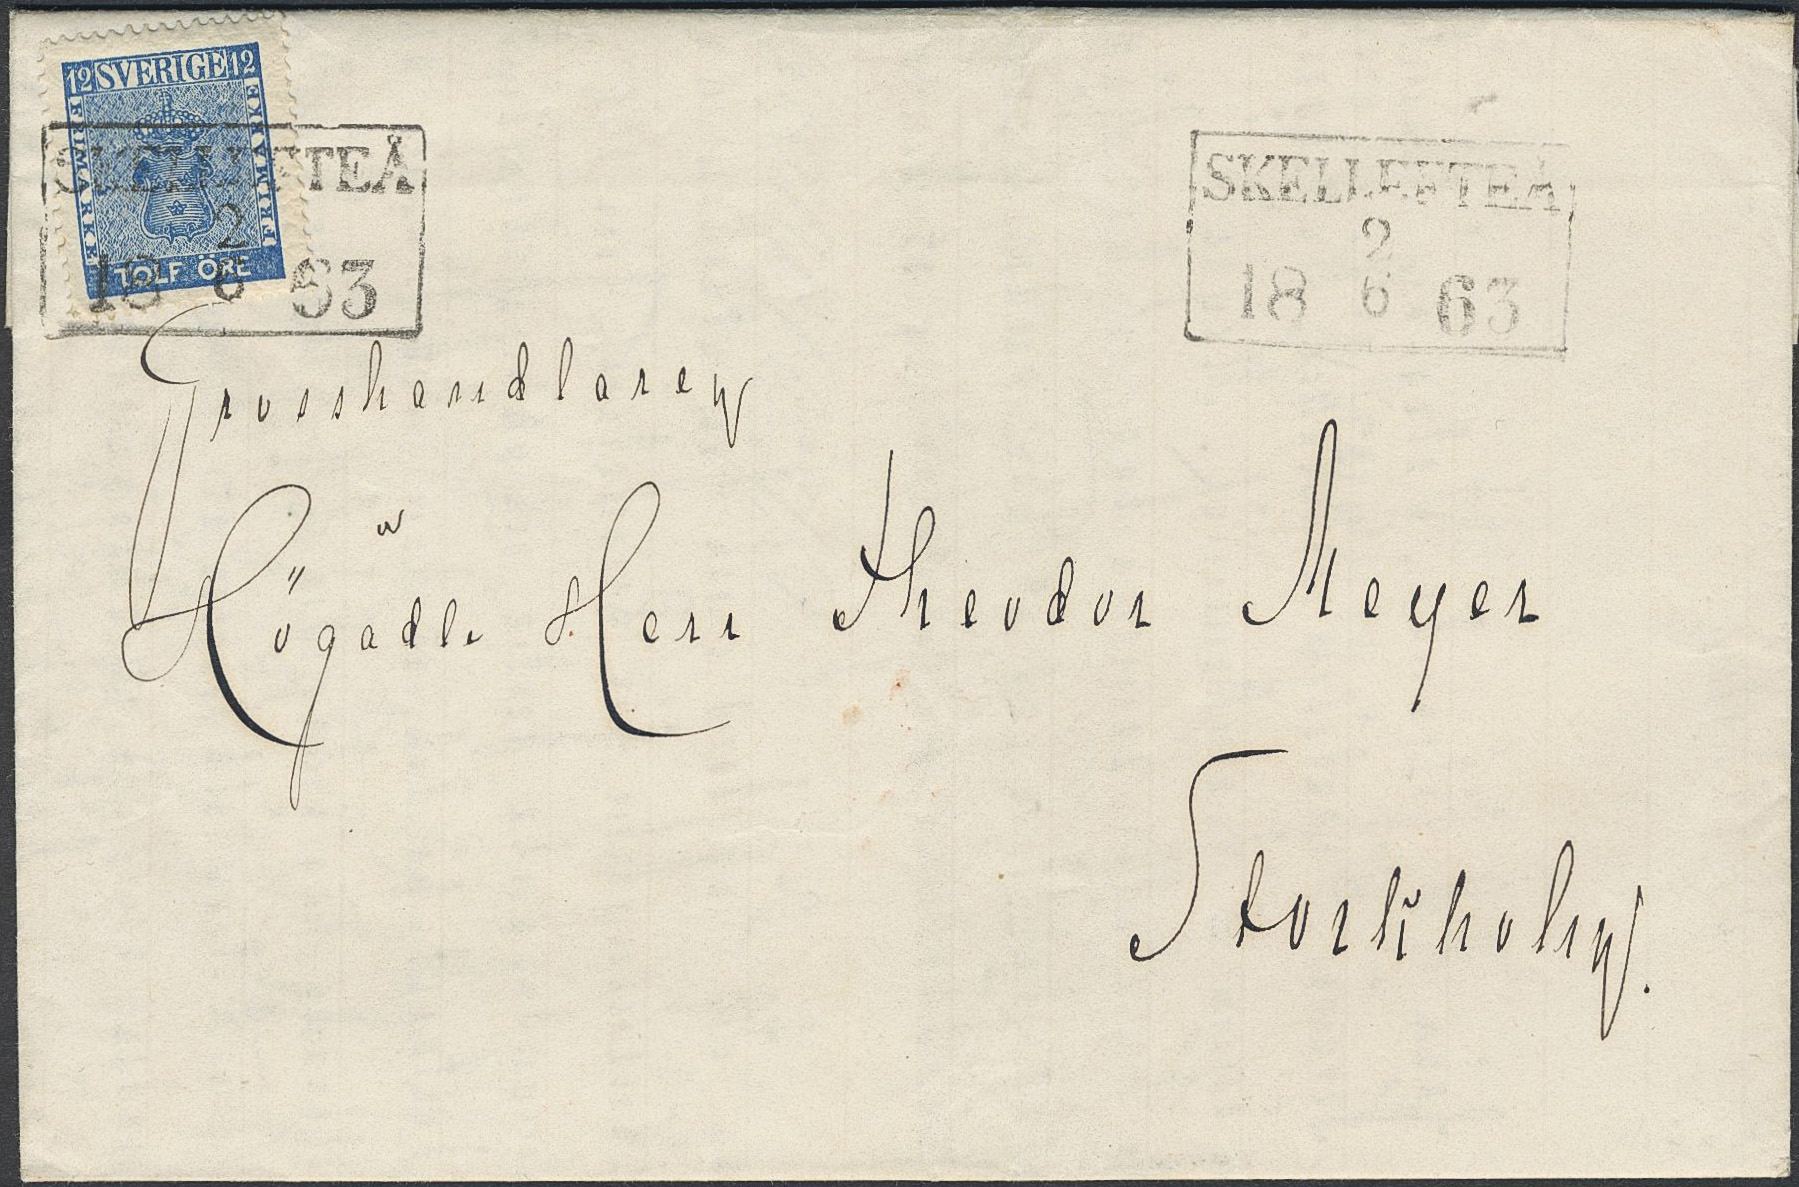 12 SVERIGE 12
FRIMARKE
FRIMARKE
TOLF ÖRE
SKELLEFTEÅ
2
18 6 63
SKELLEFTEÅ
2
18 6 63
Grosshandlaren
Högädle Herr Theodor Meyer
Stockholm.